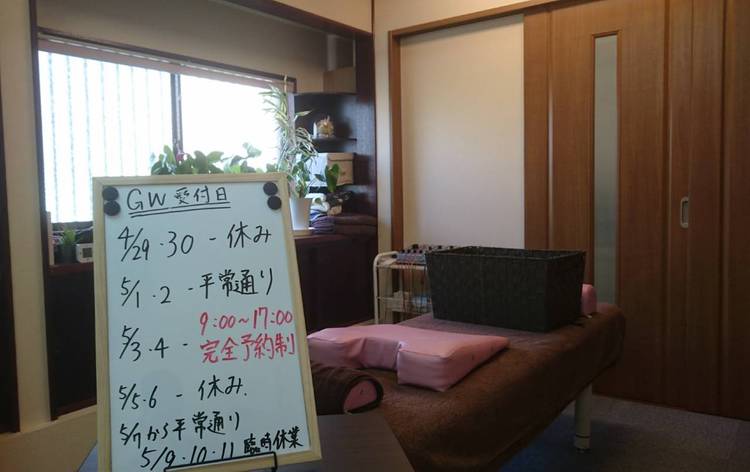 GW受付日
4/29・30 - 休み
5/1・2 - 平常通り
5/3・4 - 9:00〜17:00
完全予約制
5/5・6 - 休み.
5/7から平常通り
5/9・10・11 臨時休業